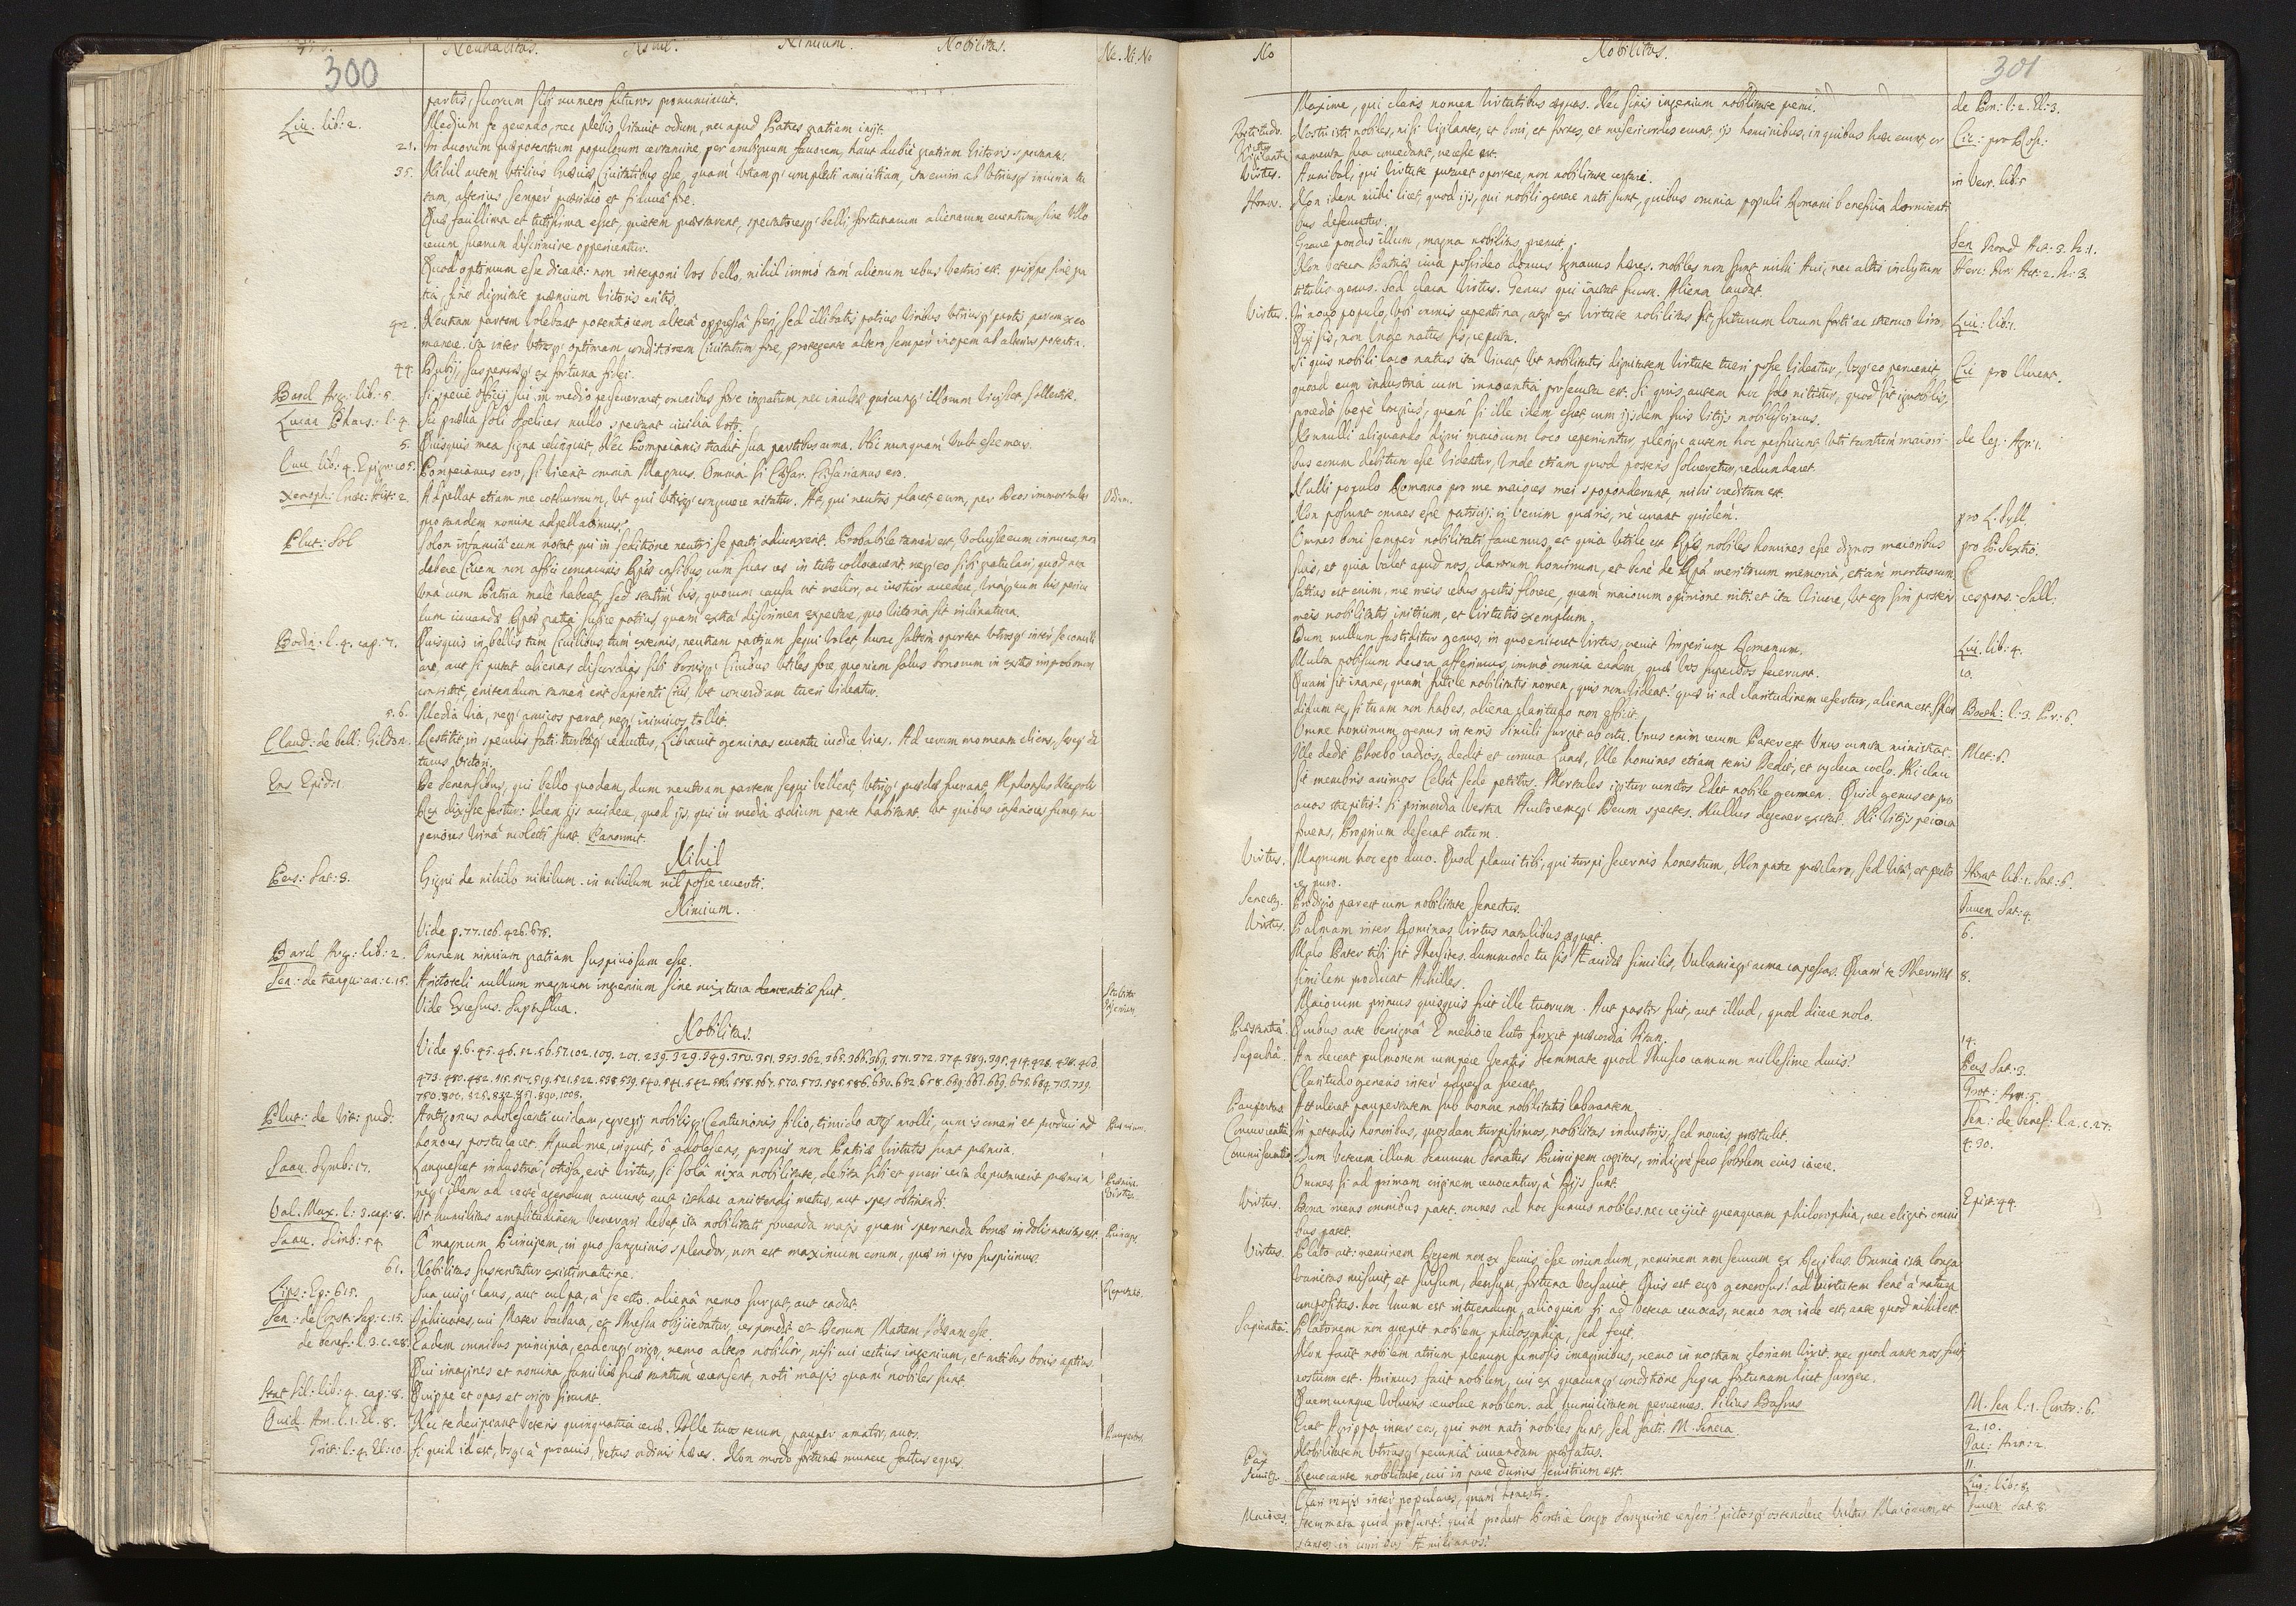 300
Neutralitas. Nihil. Nimium. Nobilitas.
Ne. Ni. No
partis, suorum sibi numero futuros pronunciavit.
Liv. lib: 2. Medium se gerendo, nec plebis vitavit odium, nec apud Patres gratiam inijt.
21. In duorum praepotentium populorum certamine, per ambiguum favorem, haut dubiè gratiam victoris spectant.
35. Nihil autem utilius Civitatibus esse, quam utramq' complecti amicitiam, ita enim ab utriusq' iniuria tu
tam, alterius semper praesidio et fiducia fore.
Quae facillima et tutissima esset, quietem praestarent, spectatoresq' belli fortunarum alienarum eventum, sine ullo
rerum suarum discrimine opperirentur.
Quod optimum esse dicant: non interponi vos bello, nihil immò tam alienum rebus vestris est. quippe sine gra
tia, sine dignitate praemium victoris eritis.
42. Neutram partem volebant potentiorem altera oppressa fieri, sed illibatis potius viribus utriusq' partis pacem ex eo
manere. ita inter utrosq' optimam conditionem Civitatum fore, protegente altero semper inopem ab alterius potentia.
44. Dubij, suspensiq' ex fortuna fidei.
Barcl. Arg: lib: 5. Si specie officij sui in medio perseveraret omnibus fore ingratum, nec inultos quicunq' illorum vicisset, sollertiae.
Lucan Phars. l: 4. Sic praelia soli Foelices nullo spectant civilia voto.
5. Quisquis mea signa relinquit, Nec Pompeianis tradit sua partibus arma. Hic nunquam vult esse meus.
Ouu. lib: 4. Epigr: 105. Pompeianus ero, si vicerit omnia Magnus. Omnia si Caesar. Caesarianus ero.
Xenoph: Graec: Hist: 2. Appellat etiam me cothurnum, ut qui utrisq' congruere nitatur. At, qui neutris placet, eum, per Deos immortales Odium.
quo tandem nomine adpellabimus?
Plut: Sol Solon infamia eum notat qui in seditione neutri se parti adiunxerit. Probabile tamen est, voluisse eum innuere, non
debere Civem non affici communis Rpb. casibus cum suas res in tuto collocaverit neq' eo sibi gratulari, quod non
unà cum Patria malè habeat, sed statim his, quorum causa sit melior, ac iustior accedere, unàq' cum his pericu
lum iuvandae Rpb. gratia subire potius quam extra discrimen expectare, quo victoria sit inclinatura.
Bodin: l: 4. cap: 7. Quisquis in bellis tam Civilibus, tum externis, neutram partium sequi volet, hunc saltem oportet utrosq' inter se concili
are, aut si putat alienas discordias sibi bonisq' Civibus utiles fore, quoniam salus bonorum in exitio improborum
consistit, enitendum tamen erit sapienti Civi, ut concordiam tueri videatur.
5. 6. Media via, neq' amicos parat, neq' inimicos tollit.
Claud: de bell: Gildon. Restitit in speculis fati turbaq' reductus, Libravit geminas eventu iudice vires. Ad rerum momenta cliens, seseq' da
turus victori.
Ens Epid: 1. De Senensibus, qui bello quodam, dum neutram partem sequi vellent, utriq' praeda fuerant, Alphonsus Neapolis
Rex dixisse fertur: Idem ijs accidere, quod ijs, qui in media aedium parte habitant. ut quibus inferiores fumo, su
periores urina molesti sunt. Panormit.
Nihil
Pers: Sat: 3. Gigni de nihilo nihilum. in nihilum nil posse reverti.
Nimium.
Vide p. 77. 106. 426. 675.
Barcl Arg: lib: 2. Omnem nimiam gratiam suspiciosam esse.
Sen: de tranqu: an: c. 15. Aristoteli nullum magnum ingenium sine mixtura dementiae fuit.
Vide Excessus. Superflua.
Nobilitas.
Vide p. 6. 45. 46. 52. 56. 57. 102. 109. 201. 239. 329. 349. 350. 351. 353. 362. 365. 366. 369. 371. 372. 374. 389. 395. 414. 428. 438. 460.
Plut: de Vit: pud: Antigonus adolescenti cuidam, egregij nobilisq' Centurionis filio, timido atq' molli, cum is ornari et produci ad Praemium.
honores postularet. Apud me, inquit, ô adolescens, propriis non Patriae virtutis sunt praemia.
Saav. Symb: 17. Languesceret industria, otiosa erit virtus, si sola nixa nobilitate, debita sibi et quasi certa deputaverit praemia, Praemia.
neq' illam ad rectè agendum accuunt aut cohibae amittendj metus, aut spes obtinendi. Virtus.
Val. Max. l: 3. cap: 8. Ut humilitas amplitudinem venerari debet ita nobilitati fovenda magis quam spernenda bonae indolis novitas est.
Saav. Simb: 54 O magnum Principem, in quo sanguinis splendor, non est maximum eorum, quae in ipso suspicimus. Princeps.
61. Nobilitas sustentatur existimatione.
Lips: Ep: 615. Sua cuiq' laus, aut culpa, à se esto. aliena nemo surgat, aut cadat.
Sen: de Const: Sap: c. 15. Iphicrates, cui Mater barbara, et Thressa objiciebatur, respondit et Deorum Matrem, Idaeam esse.
de benef: l: 3. c. 28. Eadem omnibus principia, eademq' origo, nemo altero nobilior, nisi cui rectius ingenium, et artibus bonis aptius.
Qui imagines et nomina familiae suae tantum recensent, noti magis quam nobiles sunt.
lib: 4. cap: 8. Quippe et opes et origo sinunt.
Ouid. Am. l: 1. El. 8. Nec te decipiant veteris quinquatria cerae. Tolle tuos tecum, pauper amator, avos. Paupertas.
Trist: l: 4. El: 10. Si quid id est, usq' à proavis, vetus ordinis haeres. Non modo fortunae munere factus eques.
No
Nobilitas.
301
Maxime, qui claris nomen virtutibus aequas. Nec sinis ingenium nobilitate premi. de Pon: l: 2. El: 3.
Fortitudo. Nostri isti nobiles, nisi vigilantes, et boni, et fortes, et misericordes erunt, ijs hominibus, in quibus haec erunt, or Cic: pro Rosc:
Vigilantia namenta sua concedant, necesse est.
Virtus. Annibal, qui virtute putavit oportere, non nobilitate certari. in Verr. lib: 5
Honos. Non idem mihi licet, quod ijs, qui nobili genere nati sunt, quibus omnia populi Romani beneficia dormienti
bus deferuntur.
Grave pondus illum, magna nobilitas, premit. Sen Troad Act: 3. Sc: 1.
Non vetera Patriae iura possideo domus Ignavus haeres. nobiles non sunt mihi Avi, nec altis inclytum Herc: Fur: Act: 2. Sc: 3.
titulis genus. Sed clara virtus. Genus qui iactat suum. Aliena laudat.
Virtus. In novo populo, ubi omnis repentina, atq' ex virtute nobilitas sit, futurum locum forti ac strenuo viro. Liv: lib: 1.
Qui sis, non unde natus sis, reputa.
Si quis nobili loco natus ita vivat ut nobilitatis dignitatem virtute tueri posse videatur, usq' eo pervenit, Cic pro Cluent.
quoad eum industria cum innocentia prosecuta est. Si quis autem hoc solo nititur, quod sit ignobilis,
procedit saepè longius, quam si ille idem esset cum ijsdem suis vitijs nobilissimus.
Nonnulli aliquando digni maiorum loco reperiuntur, pleriq' autem hoc perficiunt, ut tantum maiori de leg: Agr: 1.
bus eorum debitum esse videatur, unde etiam quod posteris solveretur, redundaret.
Nulli populo Romano pro me maiores mei spoponderunt, mihi creditum est.
Non possunt omnes esse patricij, si verum quaeris, nè curant quidem. pro L. Syll.
Omnes boni semper nobilitati favemus, et quia utile est Rpb. nobiles homines esse dignos maioribus pro P: Sextio.
suis, et quia valet apud nos, clarorum hominum, et benè de Rpb. meritorum memoria, etiam mortuorum.
Satius est enim, me meis rebus gestis florere, quam maiorum opinione niti: et ita vivere, ut ego sim posteris respons: Sall:
meis nobilitatis initium, et virtutis exemplum.
Dum nullum fastiditur genus, in quo eniteret virtus, crevit Imperium Romanum. Liv. lib: 4.
Multa nobilium decora afferimus, immò omnia eadem, quae vos superbos fecerunt. 10.
Quam sit inane, quam futile nobilitatis nomen, quis non videat! quae si ad claritudinem refertur, aliena est. Splen
didum te, si tuam non habes, aliena claritudo non efficit. Boeth: l: 3. Pr: 6.
Omne hominum genus in terris simili surgit ab ortu. Unus enim rerum Pater est Unus cuncta ministrat. Met: 6.
Ille dedit Phoebo radios, dedit et cornua Lunae, Ille homines etiam terris Dedit, et sydera coelo. Hic clau
sit membris animos Celsa sede petitos. Mortales igitur cunctos Edit nobile germen. Quid genus et pro
avos strepitis! Si primordia vestra Auctoremq' Deum spectes. Nullus degener exstat. Ni vitijs peiora
fovens, Proprium deserat ortum.
Virtus. Magnum hoc ego duco. Quod placui tibi, qui turpi secernis honestum, Non patre praeclaro, sed vita, et pectore Horat lib: 1. Sat: 6.
puro.
Senectus. Prodigio par est cum nobilitate, senectus. Juven Sat: 4.
Virtus. Palmam inter Dominas virtus natalibus aequat. 6.
Malo Pater tibi sit Thersites. dummodo tu sis AEacidae similis, Vulcaniaq' arma capessas. Quam te Thersitae 8.
similem producat Achilles.
Maiorum primus quisquis fuit ille tuorum. Aut pastor fuit, aut illud, quod dicere nolo.
Praestantia Quibus arte benigna E meliore luto finxit praecordia Titan. 14.
Superbia. An deceat pulmonem rumpere ventis Stemmate quod Thusco ramum millesime ducis? Pers Sat. 3.
Paupertas. Attulerat paupertatem sub honore nobilitatis laborantem.
In petendis honoribus, quosdam turpissimos, nobilitas industrijs, sed novis, praetulit. Sen: de benef: l. 2. c. 27.
Dum veterum illum Senatus Principem cogitas, indignè fers sobolem eius iacere. 4. 30.
Omnes si ad primam originem revocentur, à Dijs sunt
Virtus. Bona mens omnibus patet, omnes ad hoc sumus nobiles. nec rejicit quenquam philosophia, nec eligit: omni Epist: 44.
bus patet.
Virtus. Plato ait: neminem Regem non ex servis esse oriundum, neminem non servum ex Regibus. Omnia ista longa
varietas miscuit, et sursum, deorsum fortuna versavit. Quis est ergo generosus! ad virtutem benè à natura
compositus. hoc unum est intuendum, alioquin si ad vetera revocas, nemo non inde est, ante quod nihil est.
Sapientia. Platonem non accepit nobilem philosophia, sed fecit.
Non facit nobilem atrium plenum fumosis imaginibus, nemo in nostram gloriam vixit. nec quod ante nos fuit,
nostrum est. Animus facit nobilem, cui ex quacunq' conditione supra fortunam licet surgere.
Quemcunque volueris revolve nobilem. ad humilitatem pervenies. Silius Bassus M. Sen l: 1. Contr: 6.
Erat Agrippa inter eos, qui non nati nobiles sunt, sed facti. M. Seneca. 2. 10.
Nobilitatem utriusq' pecunia iuvandam praefatus. Tac: Ann: 2
Pax Revocante nobilitate, cui in pace durius servitium est. 11.
Clari magis inter populares, quam honesti. Liv: lib: 8.
Maiores. Stemmata quid prosunt! quid prodest Pontice longo Sanguine censeri! pictosq' ostendere vultus Maiorum, et Juven: Sat: 8.
stantes in curribus AEmilianos!